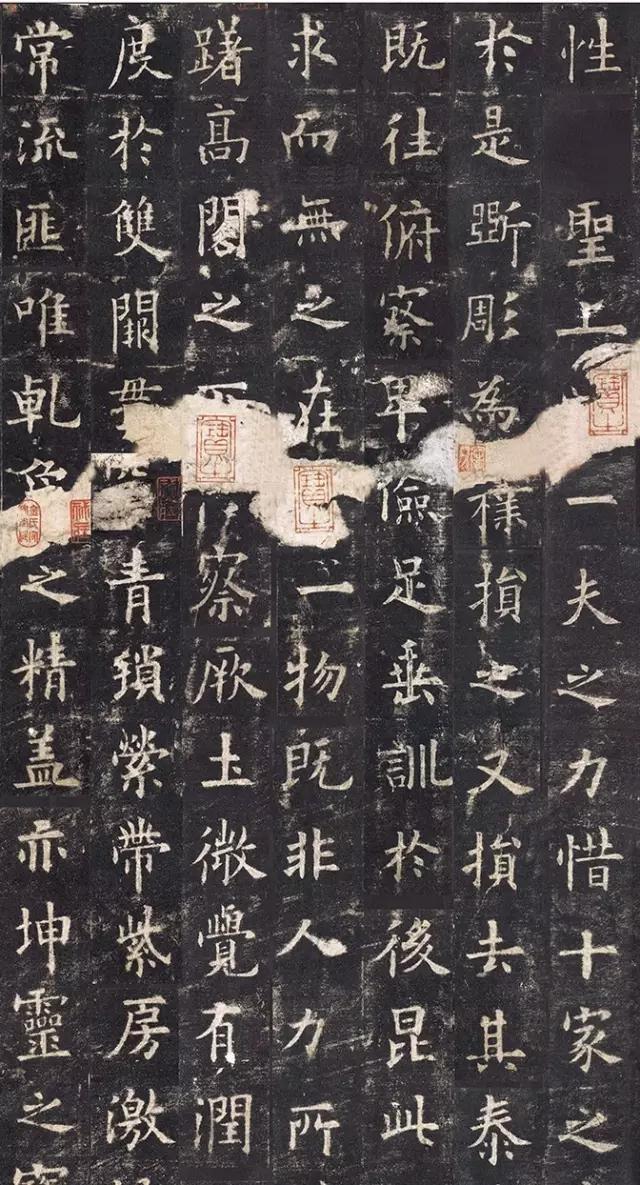 性聖上一夫之力惜十家之
於是斲彫為樸損之又損去其泰
既往俯察卑儉足垂訓於後昆此
求而無之在一物既非人力所
躇高閣之下察厥土微覺有潤
度於雙闕青瑣縈帶紫房激
常流匪唯乹之精盖亦坤靈之寶